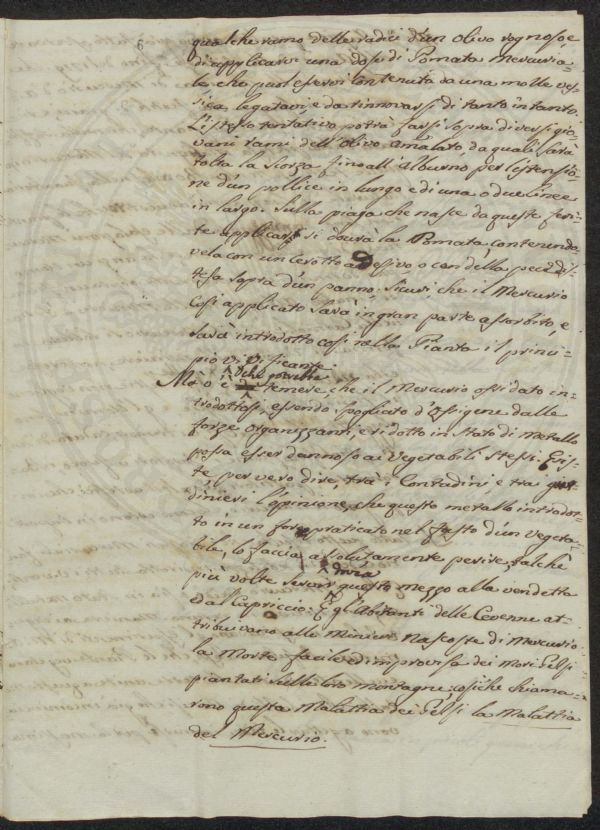 6
qualche ramo delle radici d'un Olivo rognoso e
di applicarvi una dose di Pomata Mercuria-
le che può esservi contenuta da una molle ves-
sica legatavi, e da rinnovarsi di tanto in tanto.
L'istesso tentativo potrà farsi sopra diversi gio-
vani rami dell'Olivo amalato da quali sarà
tolta la Scorza fino all'Alburno per l'estensio-
ne d'un pollice in lungo e di una o due linee
in largo. Sulla piaga che nasce da queste feri-
te applicar si dovrà la Pomata contenendo-
vela con un Cerotto adessivo o con della pece di-
stesa sopra d'un panno. Sicuri, che il Mercurio
così applicato sarà in gran parte assorbito, e
sarà introdotto così nella Pianta il princi-
pio vivificante.
Mà
temere, che il Mercurio ossidato in-
trodottosi, essendo spogliato d'Ossigene dalle
forze organizzanti, e ridotto in stato di metallo
possa esser dannoso ai Vegetabili stessi. Esis-
te, per vero dire, trà i Contadini, e tra giar-
dinieri l'opinione, che questo metallo introdot-
to in un foro praticato nel fusto d'un Vegeta-
bile, lo faccia assolutamente perire, talchè
più volte questo mezzo alla vendetta
ed al Capriccio. E gl'Abitanti delle Cevenne at-
tribuivano alle Miniere Nascoste di Mercurio
la Morte facile ed improvvisa dei Mori Gelsi
piantati sulle loro montagne: cosìche chiama-
rono questa Malattia dei Gelsi la Malattia
del Mercurio.